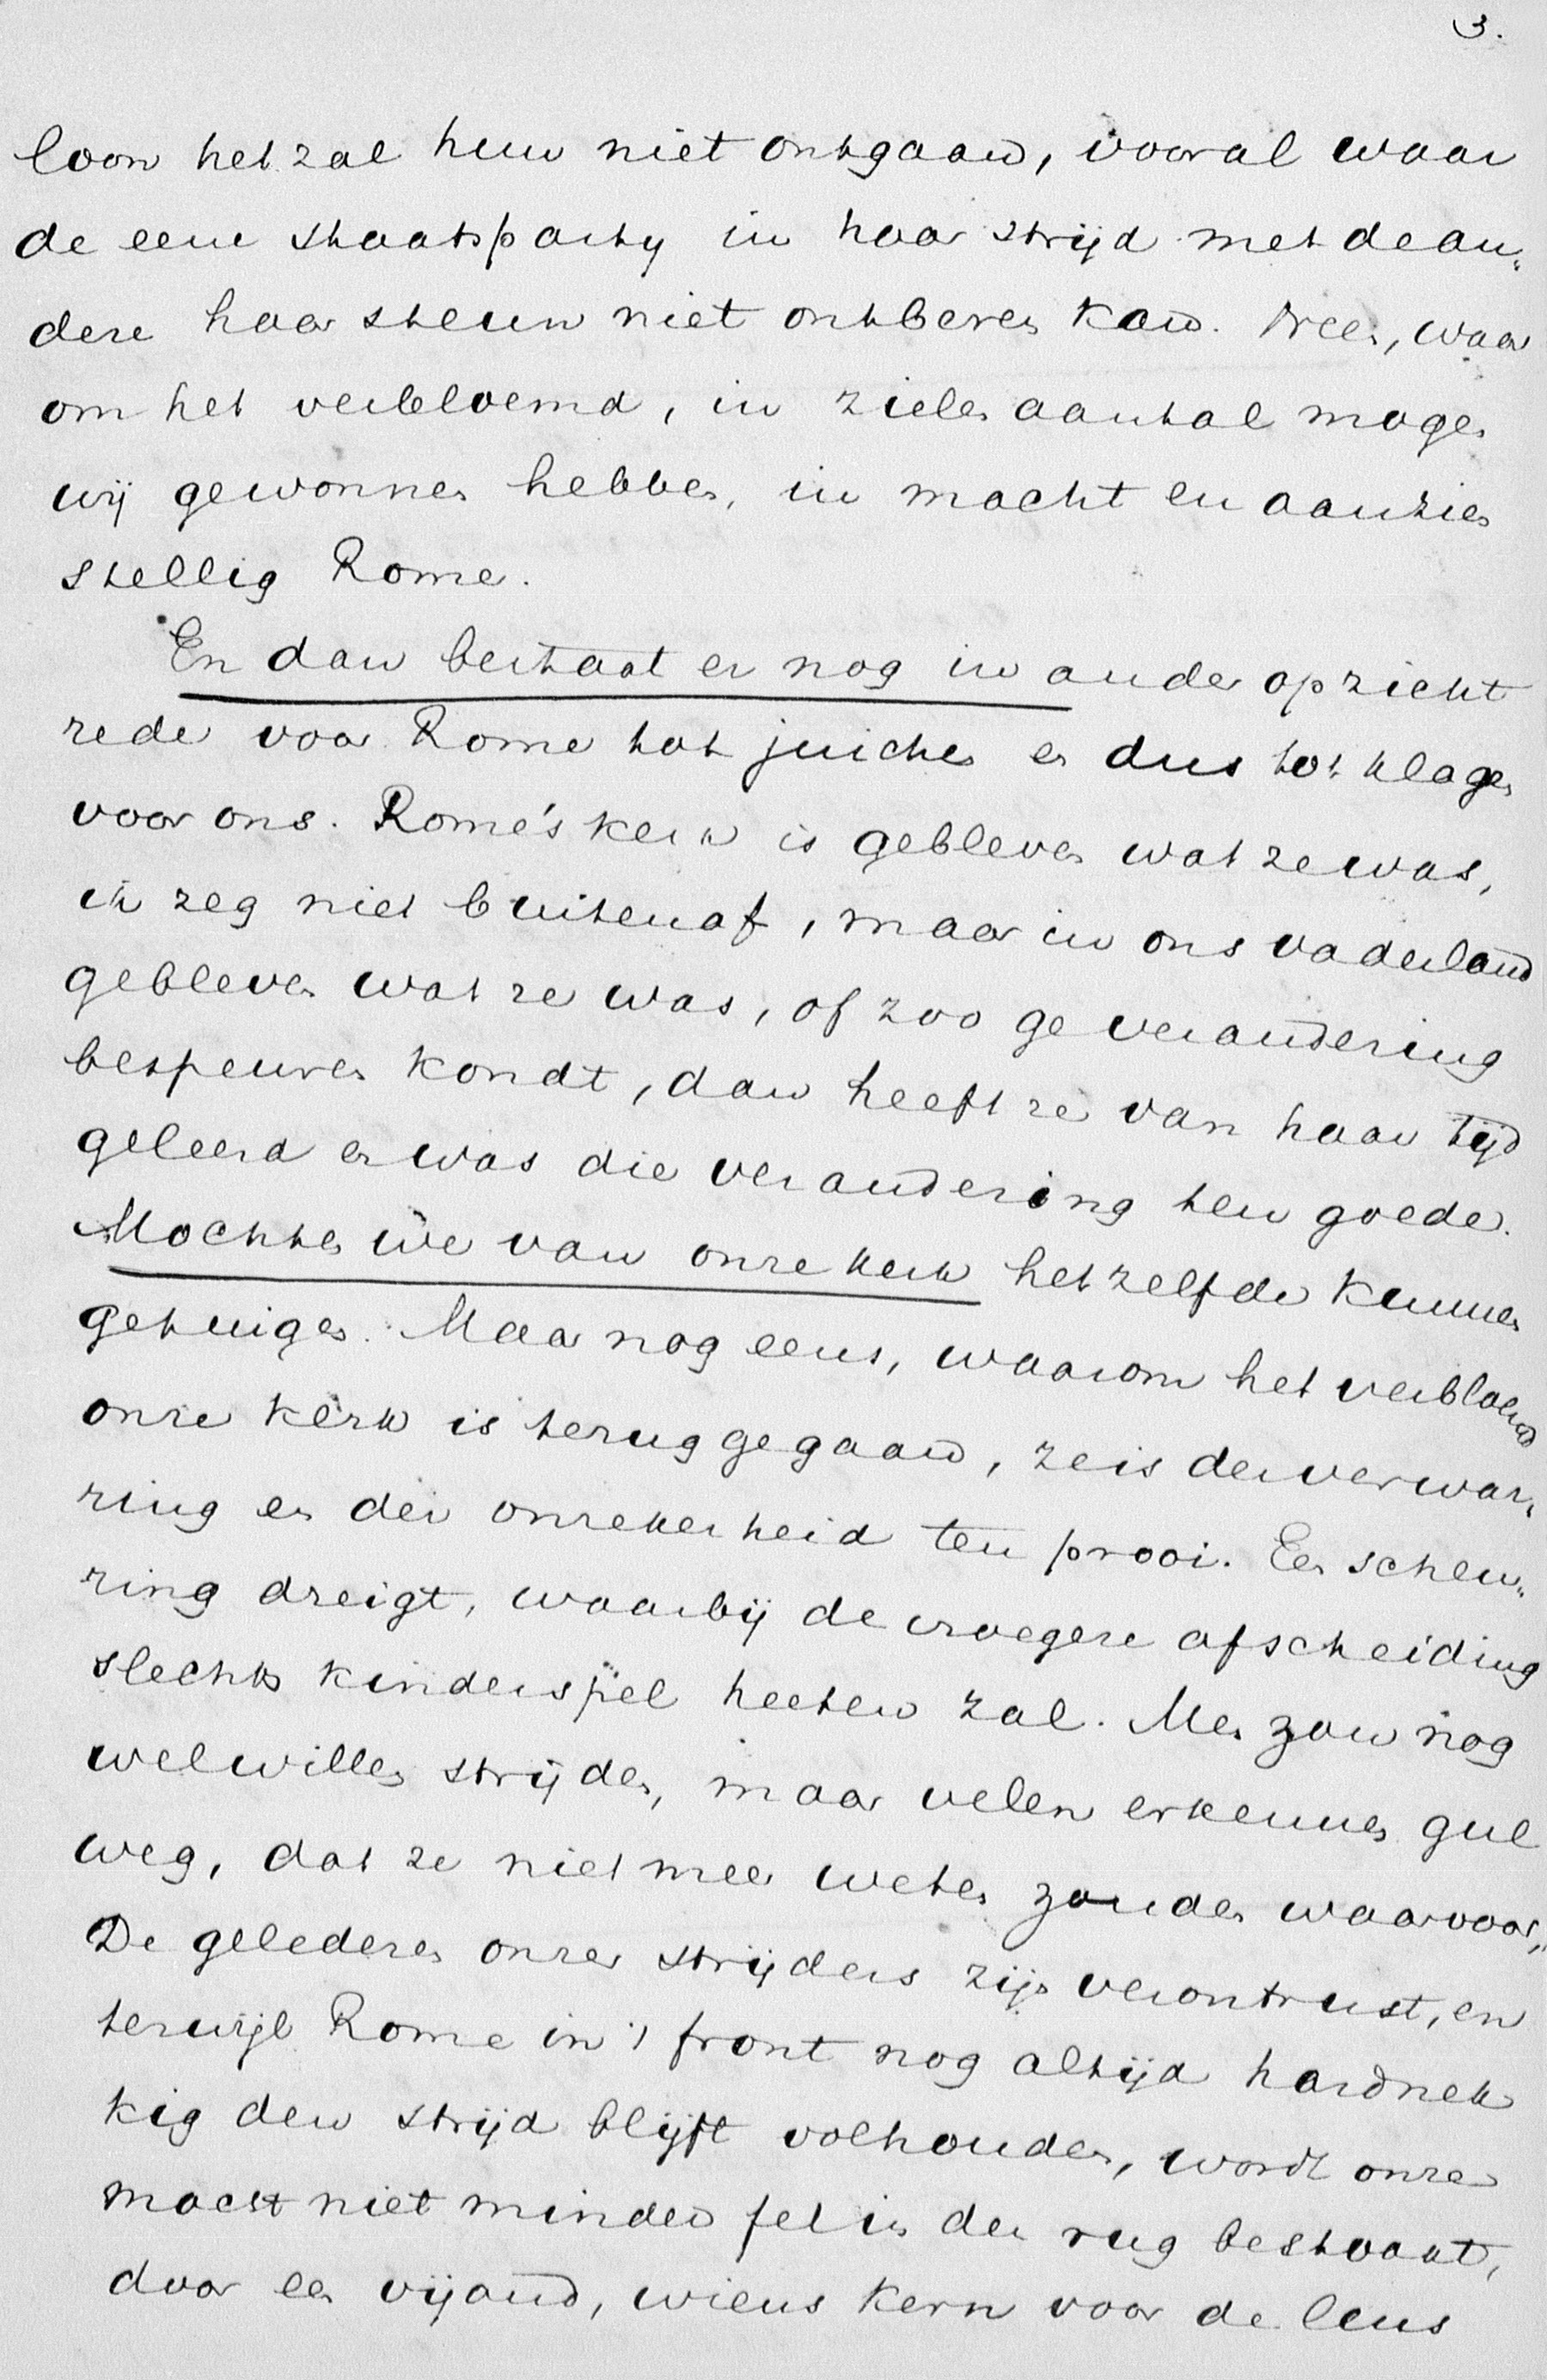 3.
loon het zal hun niet ontgaan, vooral waar
de eene staatsparty in haar strijd met de an„
dere haar steun niet ontberen kan. Neen, waar
om het verbloemd, in zielen aantal mogen
wij gewonnen hebben, in macht en aanzien
stellig Rome.
En dan bestaat er nog in ander opzicht
rede voor Rome tot juichen en dus tot klagen
voor ons. Rome's kerk is gebleven wat ze was,
ik zeg niet buitenaf, maar in ons vaderland
gebleven wat ze was, of zoo ge verandering
bespeuren kondt, dan heeft ze van haar tijd
geleerd en was die verandering ten goede.
Mochten we van onze kerk hetzelfde kunnen
getuigen. Maar nog eens, waarom het verbloemd
onze kerk is teruggegaan, ze is der verwar„
ring en der onzekerheid ten prooi. Een scheu„
ring dreigt, waarbij de vroegere afscheiding
slechts kinderspel heeten zal. Men zou nog
wel willen strijden, maar velen erkennen gul
weg, dat ze niet meer weten zouden waarvoor,„
De gelederen onzer strijders zijn verontrust, en
terwijl Rome in 't front nog altijd hardnek
kig den strijd blijft volhouden, wordt onze
macht niet minder fel in den rug bestookt,
door een vijand, wiens kern voor de leus